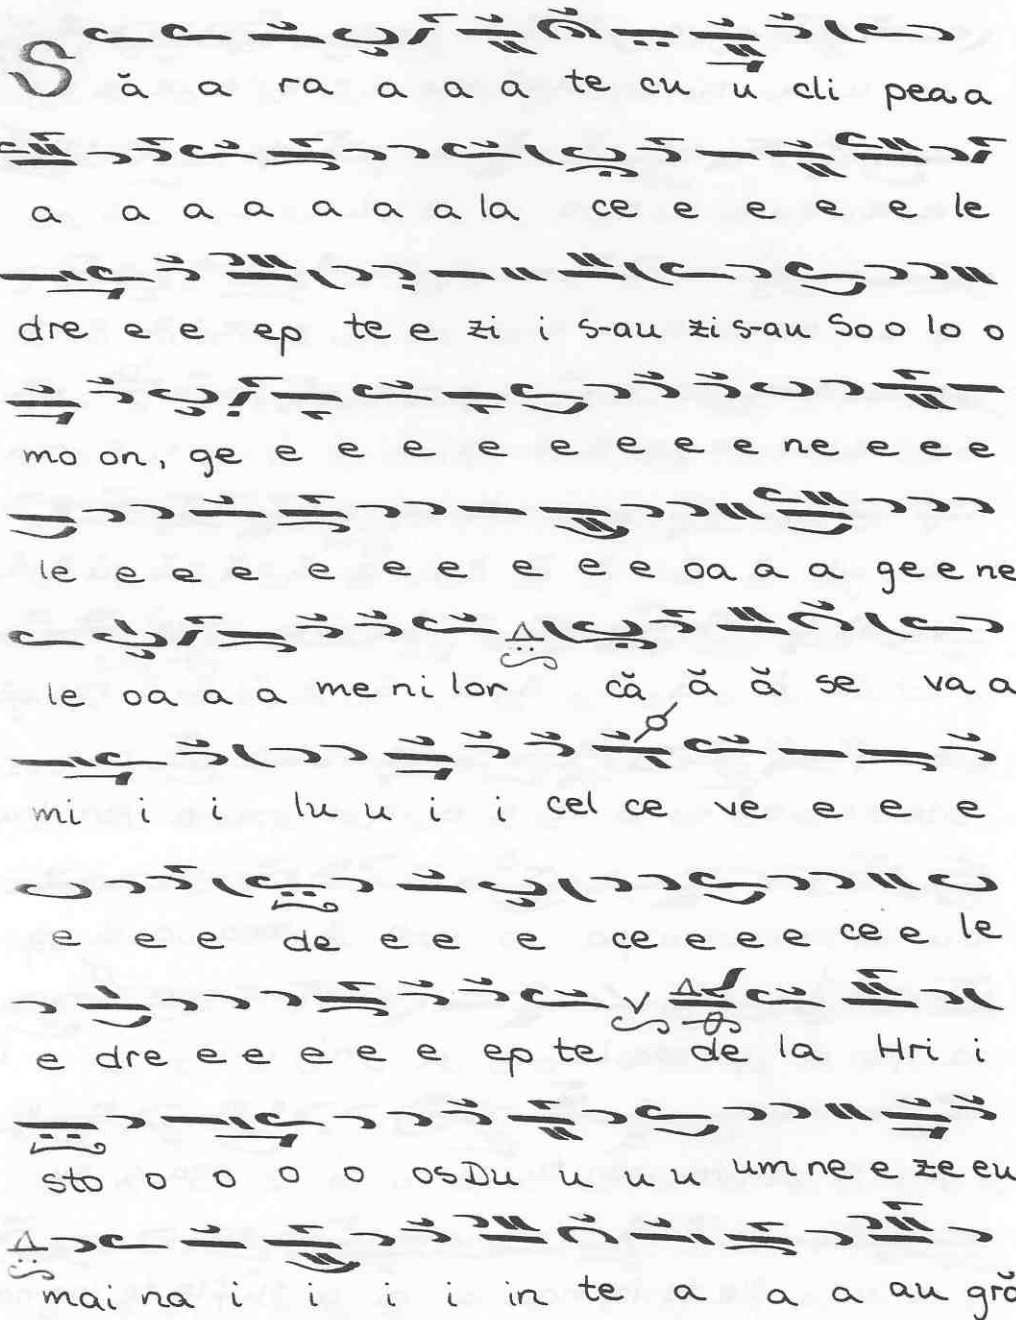 S ă a ra a a a te cu u di pea a
a a a a a a a la ce e e e e le
dre e e ep te e zi i s-au zi s-au So o lo o
mo on, ge e e e e e e e e ne e e e
le e e e e e e e e e oa a a ge e ne
le oa a a me ni lor că ă ă se va a
mi i i lu u i i cel ce ve e e e
e e e de e e e ce e e e ce e le
e dre e e e e e ep te de la Hri i
sto o o o o os Du u u u um ne e ze eu
mai na i i i i in te a a a au gră